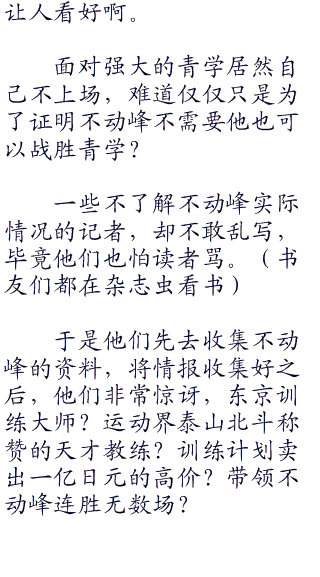 让人看好啊。
面对强大的青学居然自
己不上场，难道仅仅只是为
了证明不动峰不需要他也可
以战胜青学？
一些不了解不动峰实际
情况的记者，却不敢乱写，
毕竟他们也怕读者骂。（书
友们都在杂志虫看书）
于是他们先去收集不动
峰的资料，将情报收集好之
后，他们非常惊讶，东京训
练大师？运动界泰山北斗称
赞的天才教练？训练计划卖
出一亿日元的高价？带领不
动峰连胜无数场？